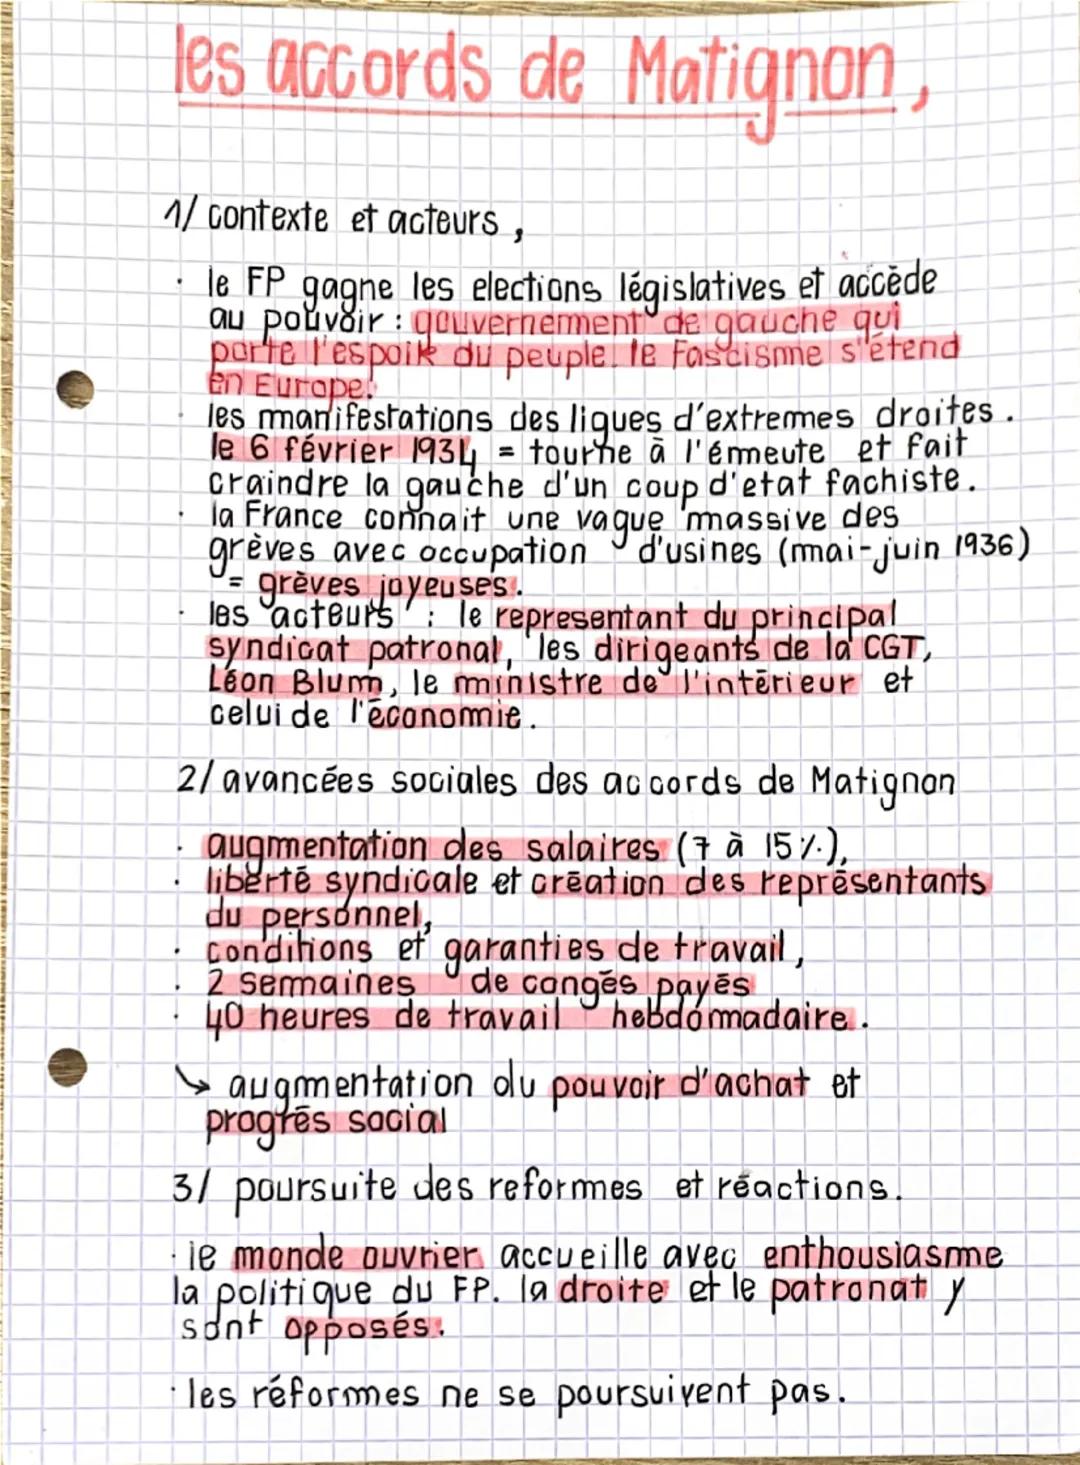 les accords de Matignon,
1/ contexte et acteurs,
· le FP gagne les elections législatives et accède
au pouvoir : gouvernement de gauche qui
porte l'espoir du peuple. le Fascisme s'étend
en Europe.
· les manifestations des ligues d'extremes droites.
le 6 février 1934 = tourne à l'émeute et fait
craindre la gauche d'un coup d'etat fachiste.
· la France connait une vague massive des
grèves avec occupation d'usines (mai-juin 1936)
= grèves joyeuses.
· les acteurs : le representant du principal
syndicat patronal, les dirigeants de la CGT,
Léon Blum, le ministre de l'intérieur et
celui de l'économie.
2/ avancées sociales des accords de Matignon
· augmentation des salaires (7 à 15%),
· liberté syndicale et création des représentants
du personnel,
· conditions et garanties de travail,
· 2 semaines de congés payés
· 40 heures de travail hebdomadaire.
↳ augmentation du pouvoir d'achat et
progrès social
3/ poursuite des reformes et réactions.
· le monde ouvrier accueille avec enthousiasme
la politique du FP. la droite et le patronat y
sont opposés.
· les réformes ne se poursuivent pas.